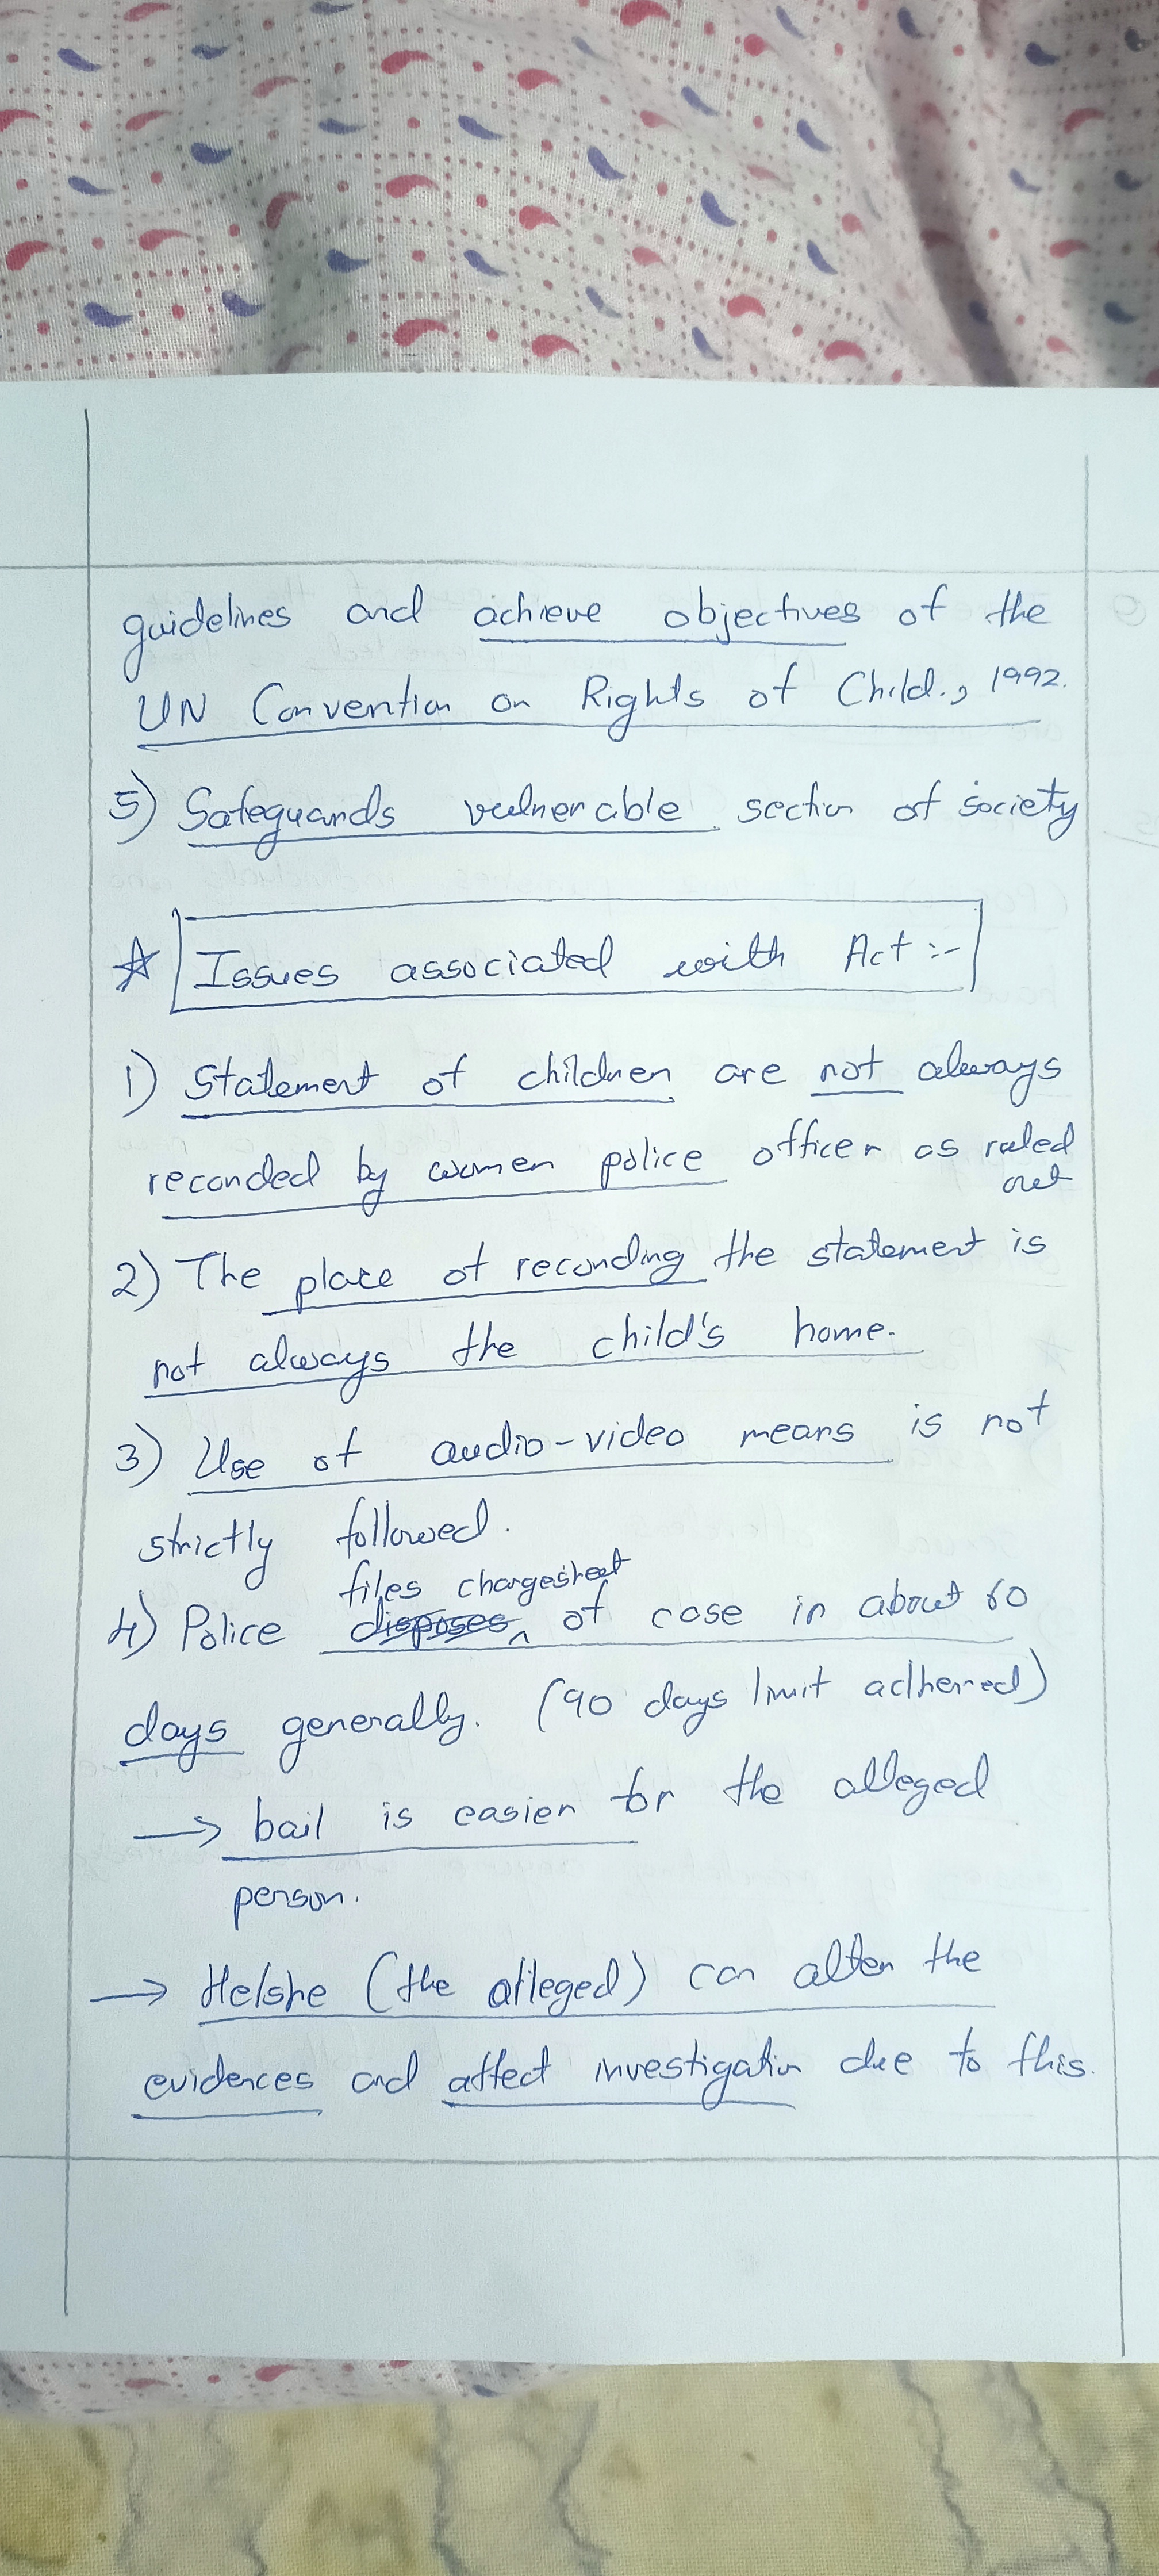 guidelines and achieve objectives of the
UN Convention on Rights of Child., 1992.
5) Safeguards vulnerable section of society
☆ Issues associated with Act :-
1) Statement of children are not always
recorded by women police officer as ruled
out
2) The place of recording the statement is
not always the child's home.
3) Use of audio-video means is not
strictly followed.
files chargesheet
4) Police disposes of case in about 60
days generally. (90 days limit adherred)
→ bail is easier for the alleged
person.
→ He/she (the alleged) can alter the
evidences and affect investigation due to this.